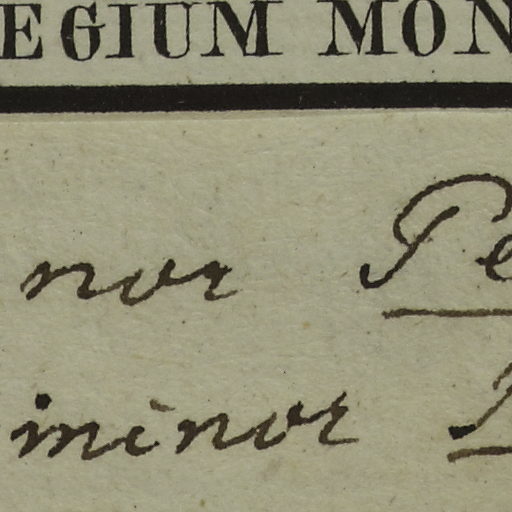 EGIUM MON
nor Pe
minor